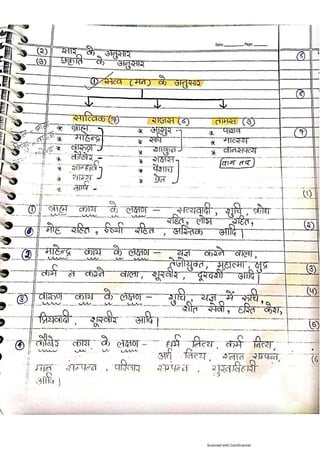 Date ________ Page ________
(२) सार के अनुसार
(३) प्रकृति के अनुसार
① सत्व (मन) के अनुसार
सात्विक (७) राजस (६) तामस (३)
* ब्राह्म * आसुर * पाशव
* माहेन्द्र * सर्प * मात्स्य
* वारुण * शाकुन * वानस्पत्य
* कौबेर * राक्षस
* गान्धर्व * पैशाच
* याम्य * प्रेत
* आर्ष
① ब्राह्म काय के लक्षण - सत्यवादी, शुचि, क्रोध
रहित, लोभ रहित,
मोह रहित, ईर्ष्या रहित, अस्तिक आदि।
② माहेन्द्र काय के लक्षण - यज्ञ करने वाला,
तेजोयुक्त, महात्मा, क्षुद्र
कर्म न करने वाला, शूरवीर, दूरदर्शी आदि।
③ वारुण काय के लक्षण - शुचि यज्ञ में रुचि,
शीत सेवी, हरित केश,
प्रियवादी, शूरवीर आदि।
④ कौबेर काय के लक्षण - धर्म नित्य, कर्म नित्य,
अर्थ नित्य, स्थान सम्पन्न,
मान सम्पन्न, परिवार सम्पन्न, सुखविहारी
आदि।
Scanned with CamScanner